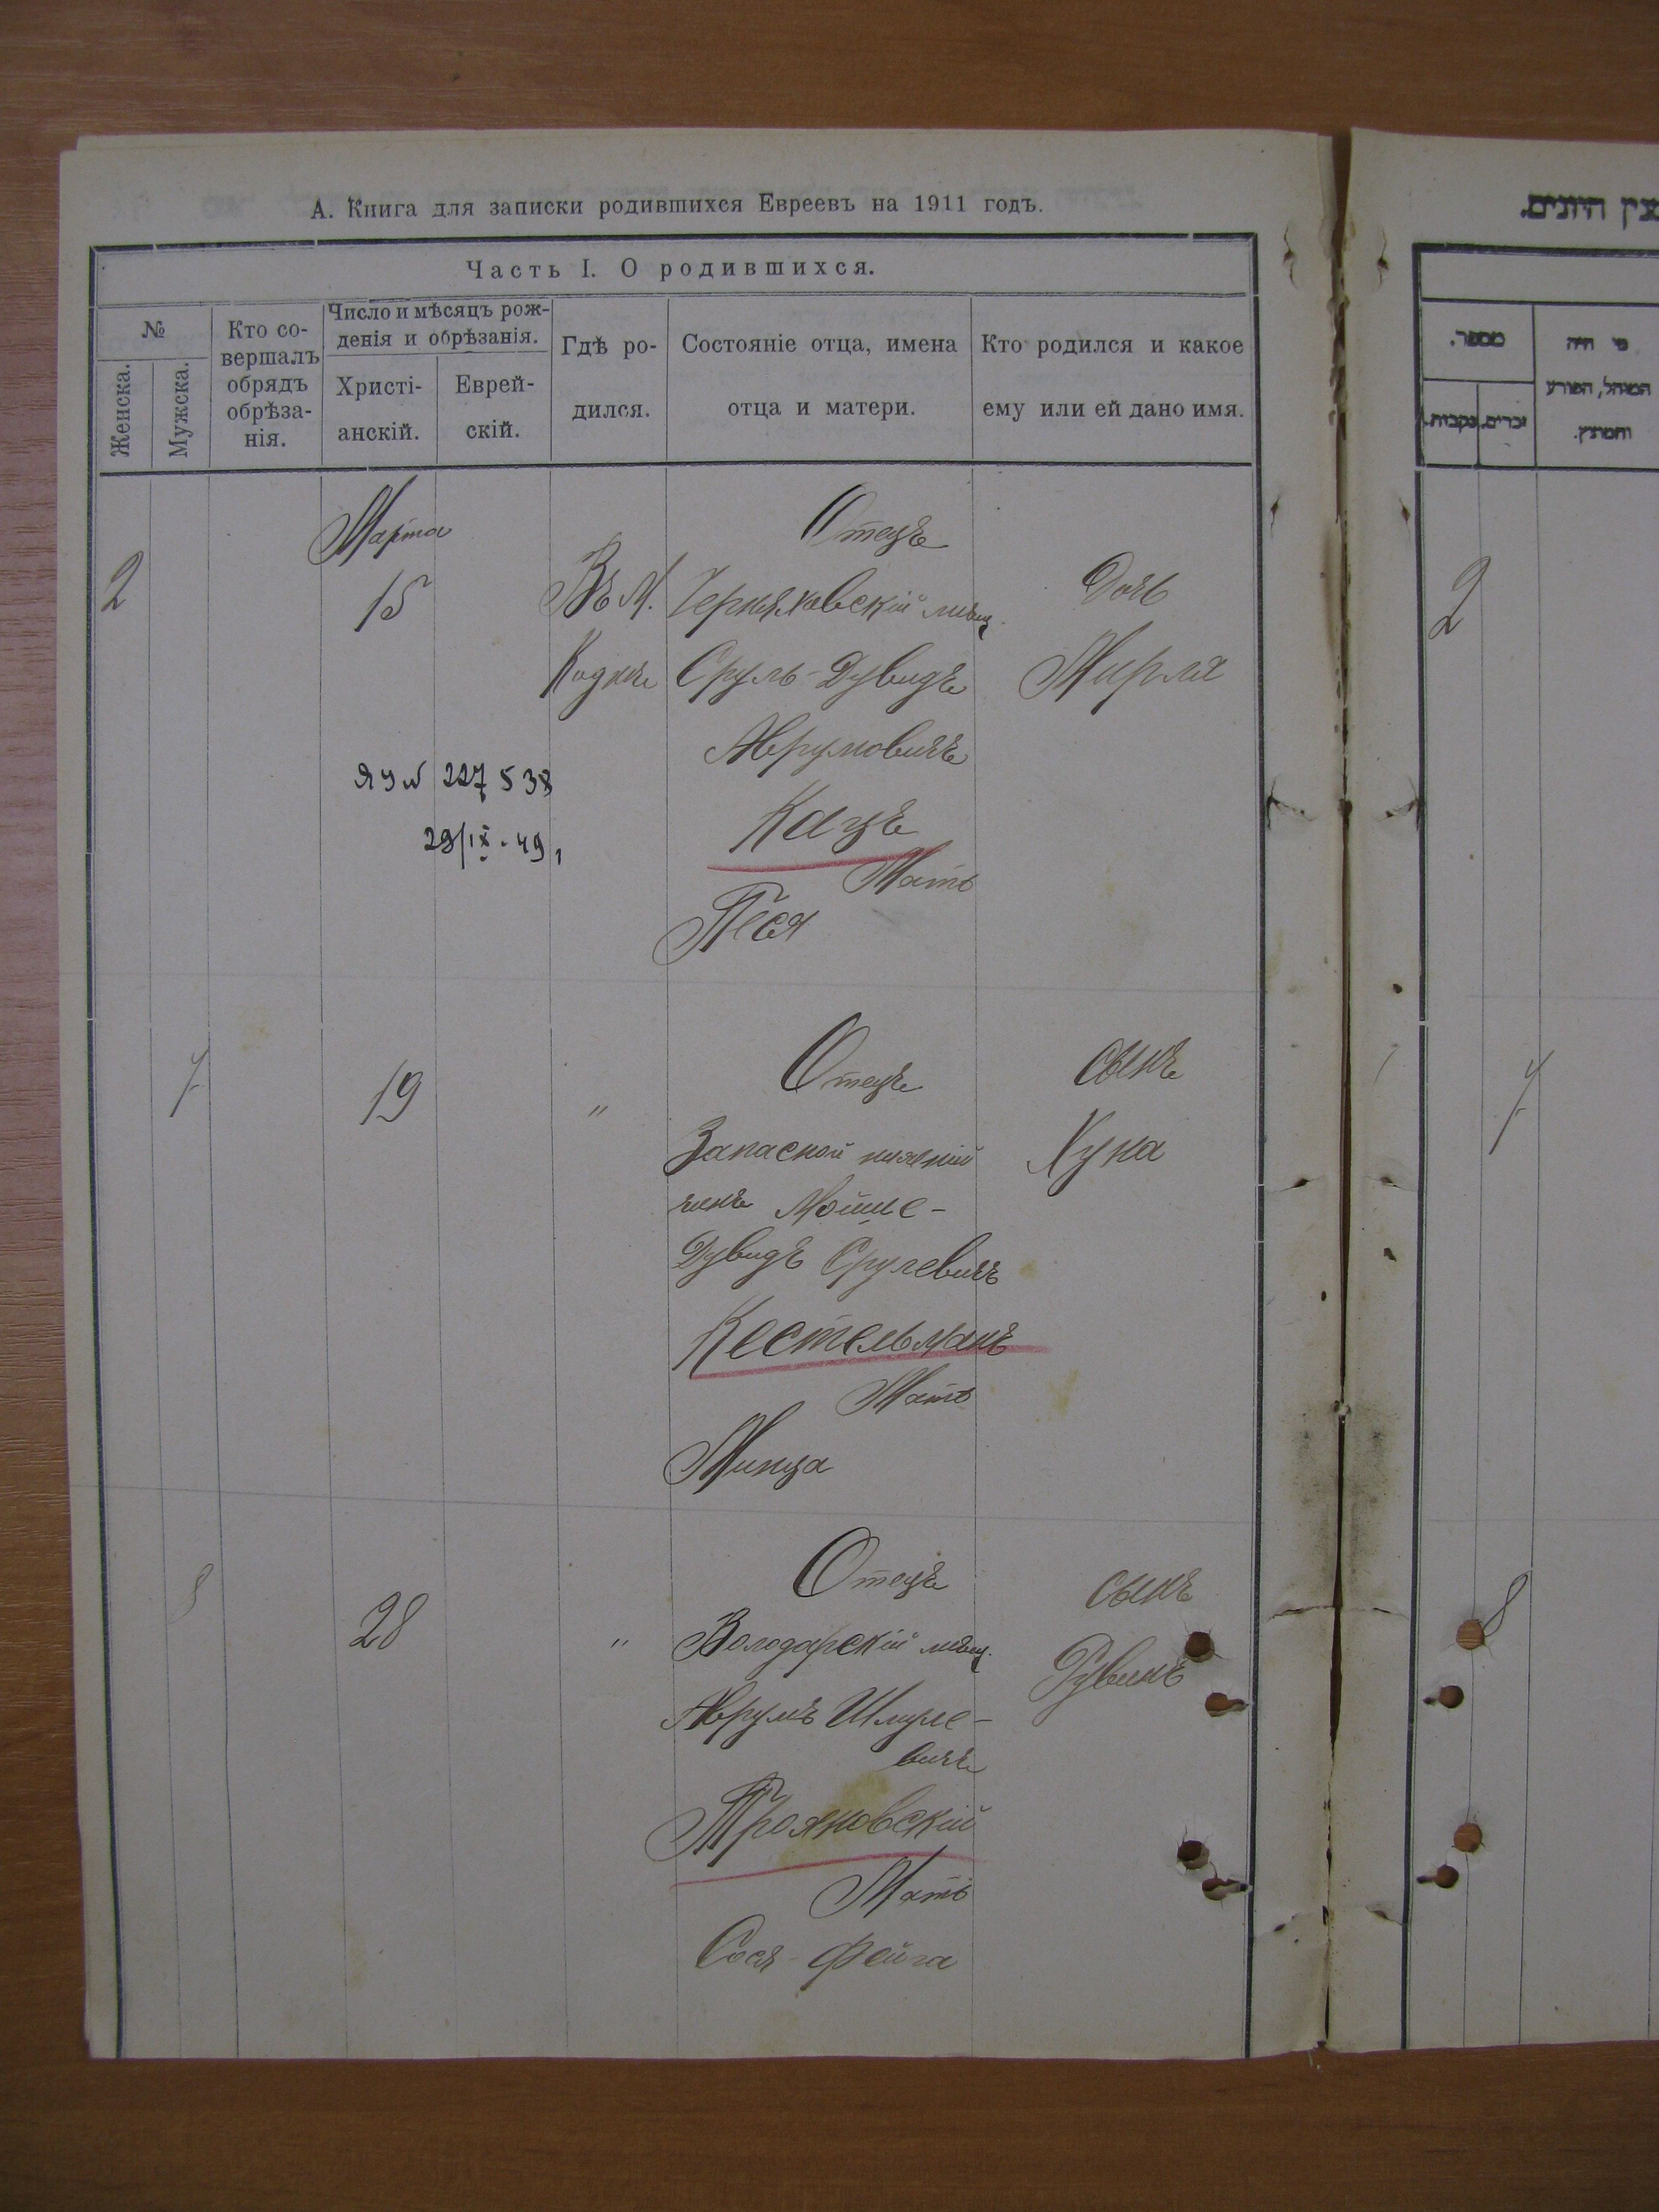 А. Книга для записки родившихся Евреевъ на 1911 годъ.
Часть I. О родившихся.
№
Женска.
Мужска.
Кто со-
вершалъ
обрядъ
обрѣза-
нія.
Число и мѣсяцъ рож-
денія и обрѣзанія.
Христі-
анскій.
Еврей-
скій.
Гдѣ ро-
дился.
Состояніе отца, имена
отца и матери.
Кто родился и какое
ему или ей дано имя.
Марта
2
15
Въ М.
Отецъ
Черняховскій мѣщ.
Сруль-Дувидъ
Аврумовичъ
Кацъ
Мать
Песя
Дочь
Мирля
227538
29/IX-49
7
19
"
Отецъ
Запасной нижній
чинъ Мошле-
Дувидъ Срулевичъ
Кестельманъ
Мать
Минца
сынъ
Хуна
8
28
"
Отецъ
Володарскій мѣщ.
Аврумъ Шмуле-
вичъ
Трояновскій
Мать
Сося-Фейга
сынъ
Рувинъ
מספר.
זכרים.
נקבות.
מי היה
המוהל, הפורע
והמוצץ.
2
7
8